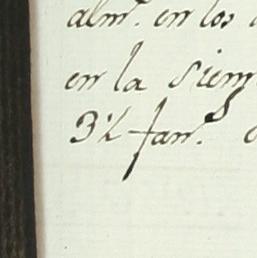 alm.s en los
en la siem
3½ fan.s